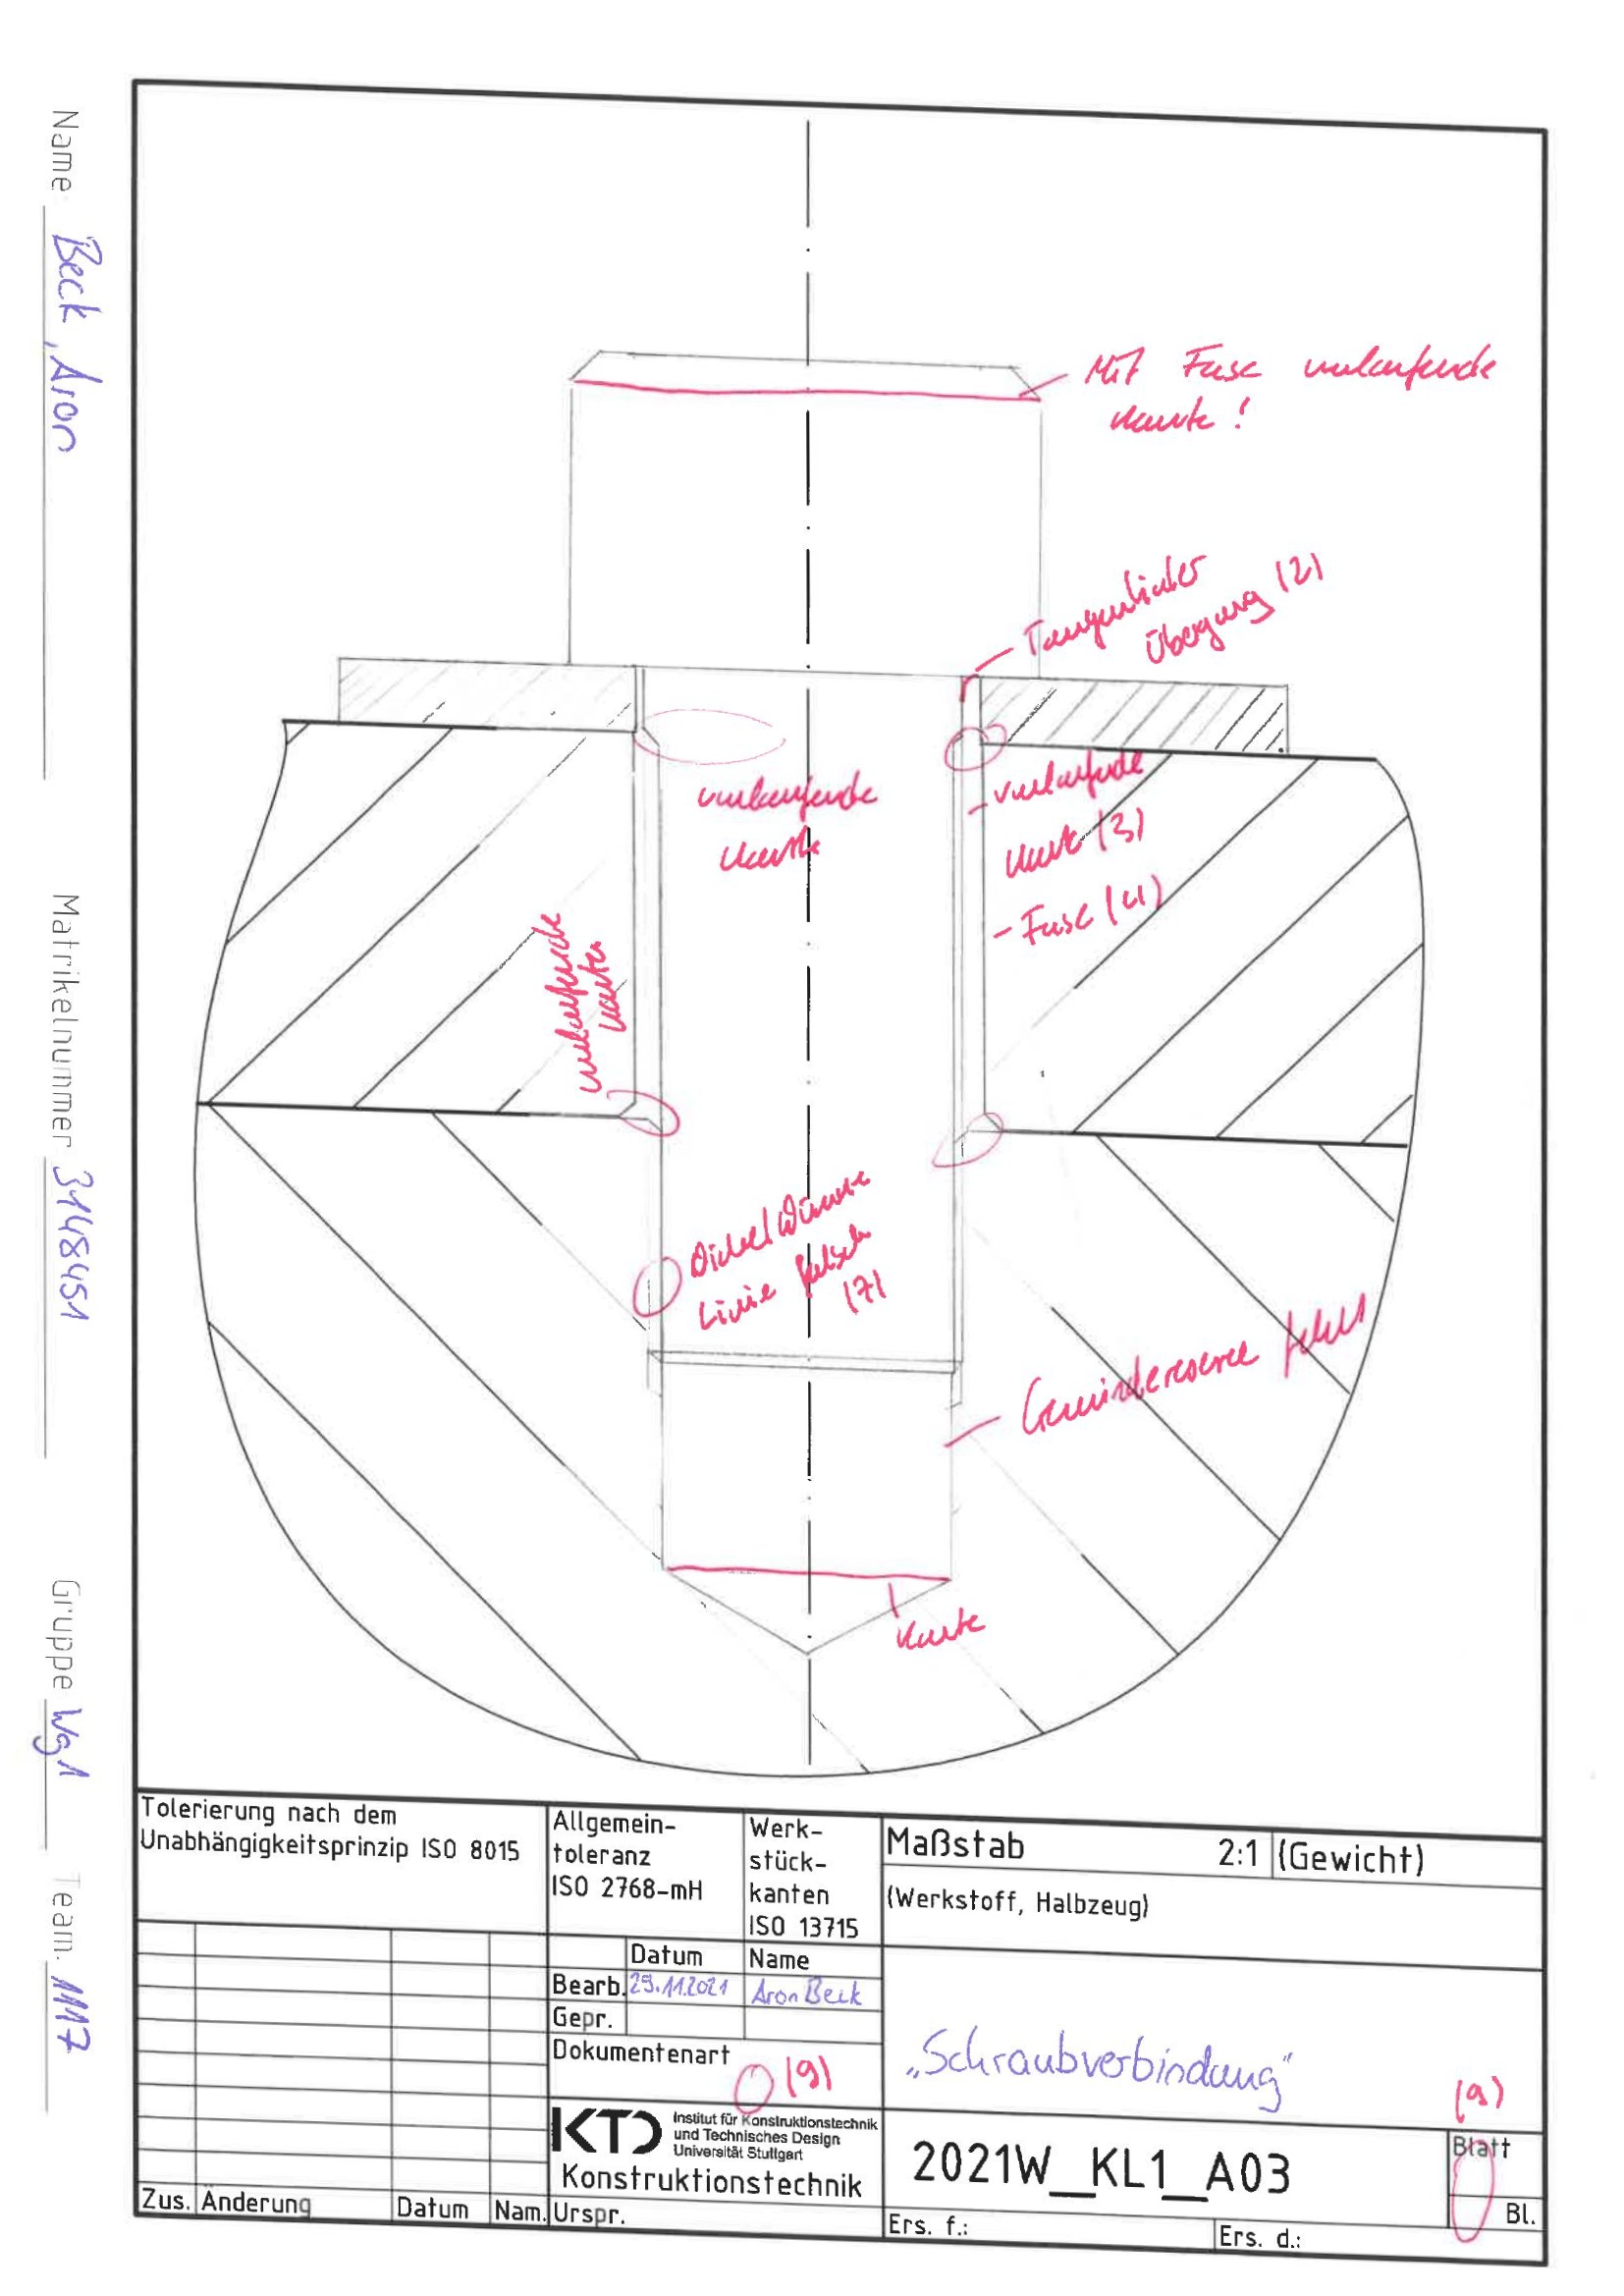 Name Beck, Aron
Matrikelnummer 3148451
Gruppe Wg1
Team. 1117
Mit Fase umlaufende
Kante!
Tangentialer
Übergang (2)
umlaufende
Kante
- umlaufende
Kante (3)
- Fase (4)
umlaufende
Kanten
Dicke/Dünne
Linie falsch
(7)
Gewindereserve fehlt
Kante
Tolerierung nach dem
Unabhängigkeitsprinzip ISO 8015
Allgemein-
toleranz
ISO 2768-mH
Werk-
stück-
kanten
ISO 13715
Maßstab 2:1 (Gewicht)
(Werkstoff, Halbzeug)
Datum Name
Bearb. 29.11.2021 Aron Beck
Gepr.
Dokumentenart
(9)
„Schraubverbindung"
(9)
KTD Institut für Konstruktionstechnik
und Technisches Design
Universität Stuttgart
Konstruktionstechnik
2021W_KL1_A03
Blatt
Bl.
Zus. Änderung Datum Nam. Urspr.
Ers. f.: Ers. d.: